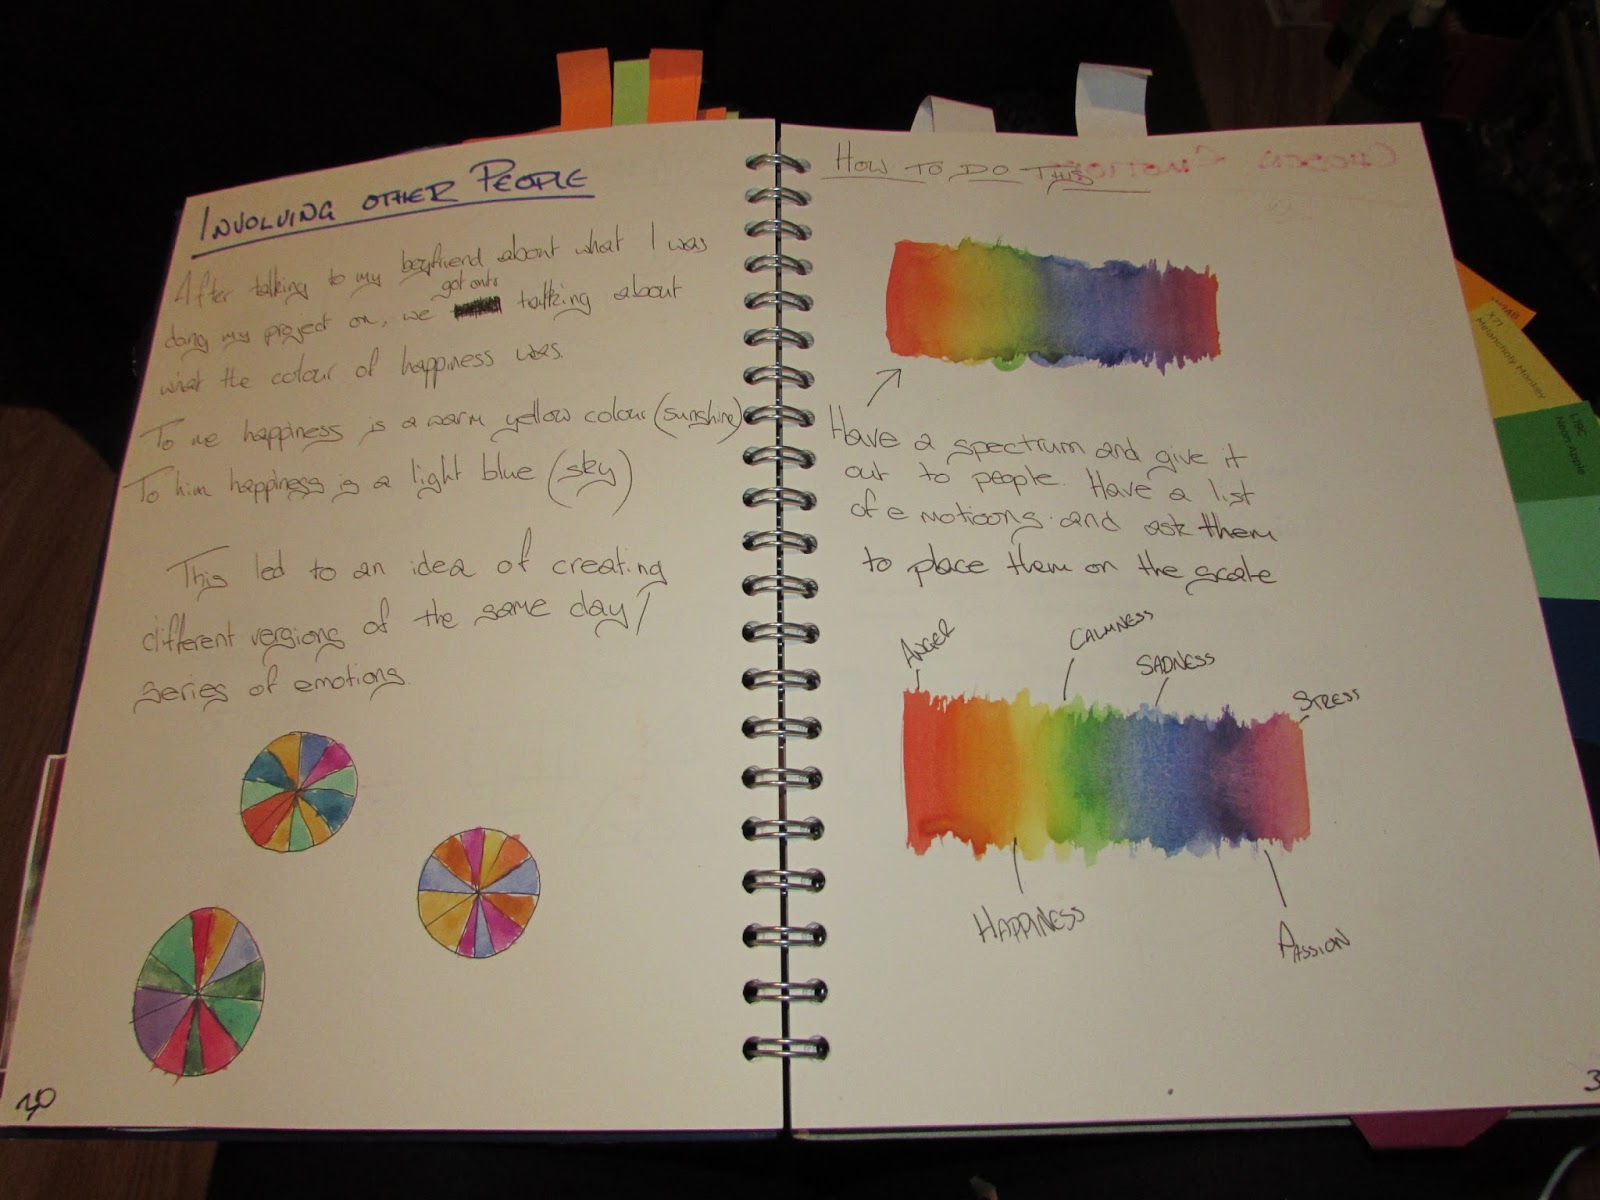 INVOLVING OTHER PEOPLE
After talking to my boyfriend about what I was
doing my project on, we got onto talking about
what the colour of happiness was.
To me happiness is a warm yellow colour (sunshine)
To him happiness is a light blue (sky)
This led to an idea of creating
different versions of the same day/
series of emotions.
HOW TO DO THIS
Have a spectrum and give it
out to people. Have a list
of emotioons and ask them
to place them on the scale
ANGER
CALMNESS
SADNESS
STRESS
HAPPINESS
PASSION
X71
Melancholy Monkey
Neon Apple
3